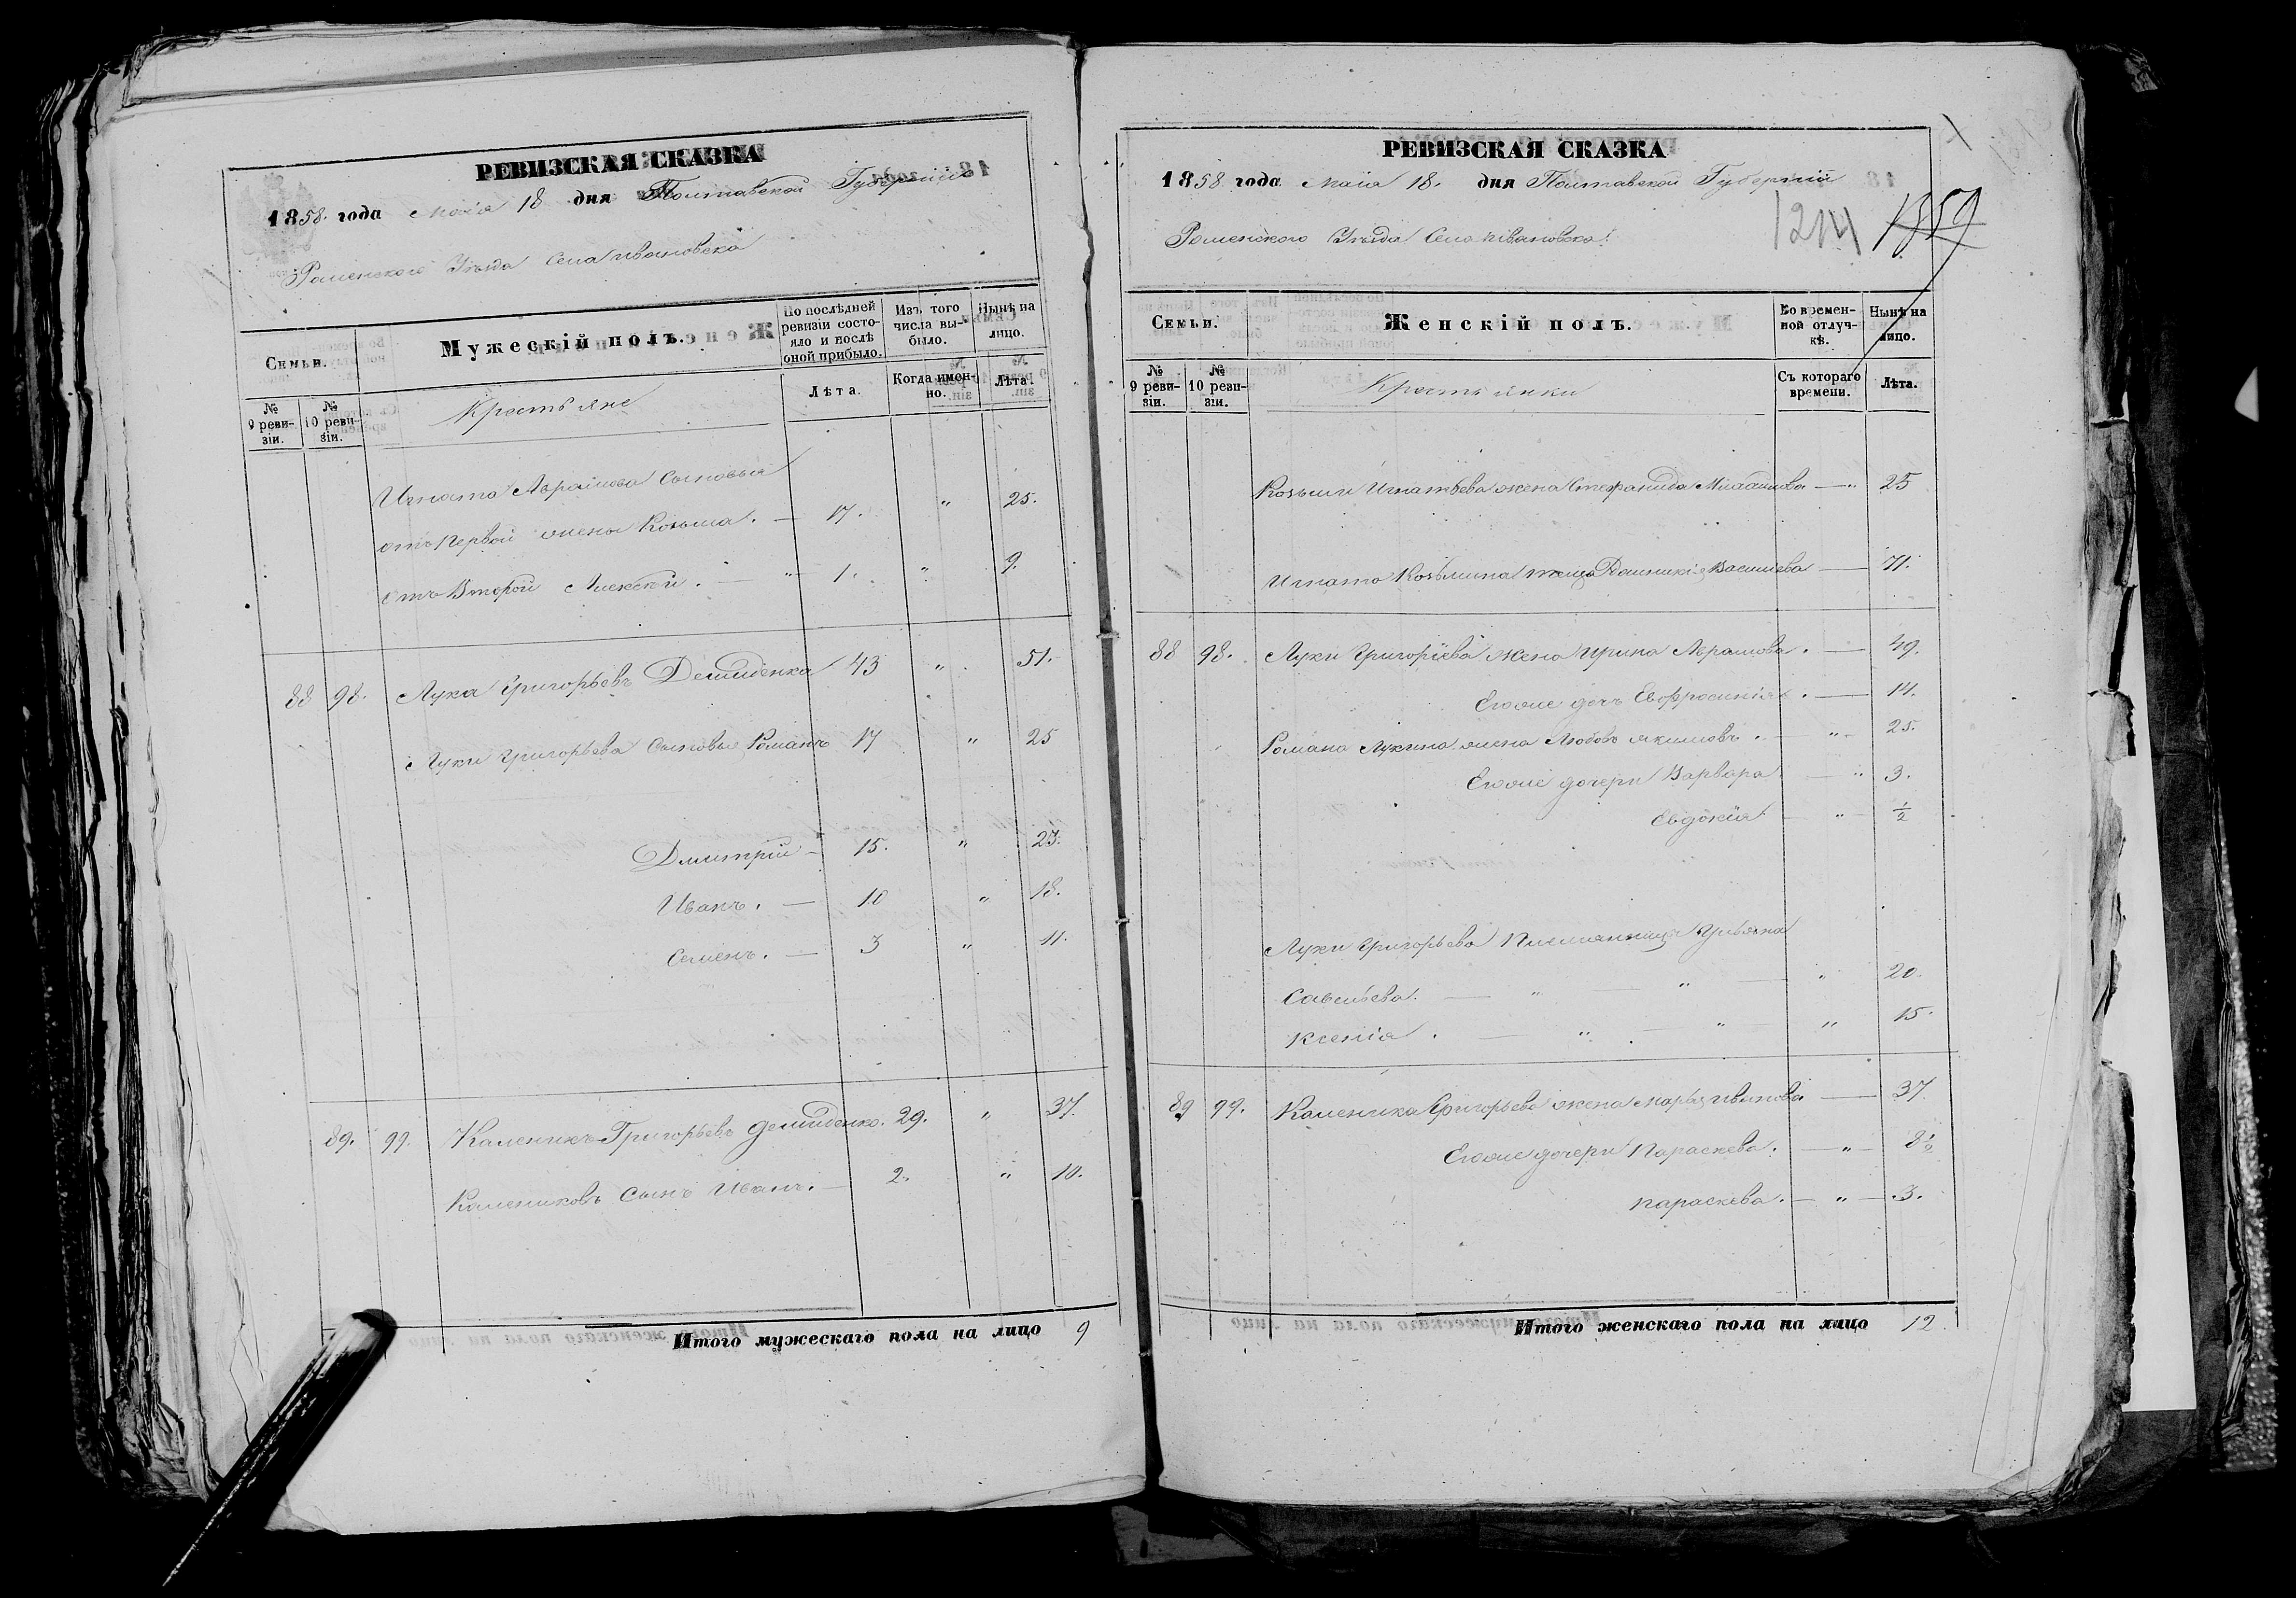 РЕВИЗСКАЯ СКАЗКА
1858. года Маія 18 дня Полтавской Губерніи
Роменского Уѣзда Села Ивановска
Семьи.
Мужескій полъ.
По послѣдней ревизіи состояло и послѣ оной прибыло.
Изъ того числа выбыло.
Нынѣ на лицо.
№ 9 ревизіи.
№ 10 ревизіи.
Крестьяне
Лѣта.
Когда именно.
Лѣта.
Игната Авраімова Сыновья
отъ первой жены Козьма. — 17. " 25.
отъ Второй Алексѣй. — " 1. " 9.
88 98. Лука Григорьевъ Демиденка 43 " 51.
Луки Григорьева Сыновья Романъ 17 " 25
Дмитрій — 15. " 23.
Иванъ. — 10 " 18.
Семенъ. — 3 " 11.
89. 99. Каленикъ Григорьевъ Демиденко. 29. " 37.
Калениковъ Сынъ Иванъ. — 2. " 10.
Итого мужескаго пола на лицо 9
РЕВИЗСКАЯ СКАЗКА
1858 года Маія 18. дня Полтавской Губерніи
1214 1359
Роменского Уѣзда Села Ивановска.
Семьи.
Женскій полъ.
Во временной отлучкѣ.
Нынѣ на лицо.
№ 9 ревизіи.
№ 10 ревизіи.
Крестьянки
Съ котораго времени.
Лѣта.
Козьми Игнатьева жена Стефанида — " 25
Игната Козьмина теща Васильева — 71.
88 98. Луки Григоріева жена Ирина Аврамова. — 49.
Егоже дочь Евфросинія. — 14.
Романа Лукина жена Любовь Якимовъ. — " — 25.
Егоже дочери Варвара — " 3.
Евдокія — " — ½
Луки Григорьева племянница Ульяна
Савельева. — " — " — " 20.
Ксенія. — " — " — " 15.
89 99. Каленика Григорьева жена Марья Иванова — 37.
Егоже дочери Параскева. — " — 8½
Параскева. — " — 3.
Итого женскаго пола на лицо 12